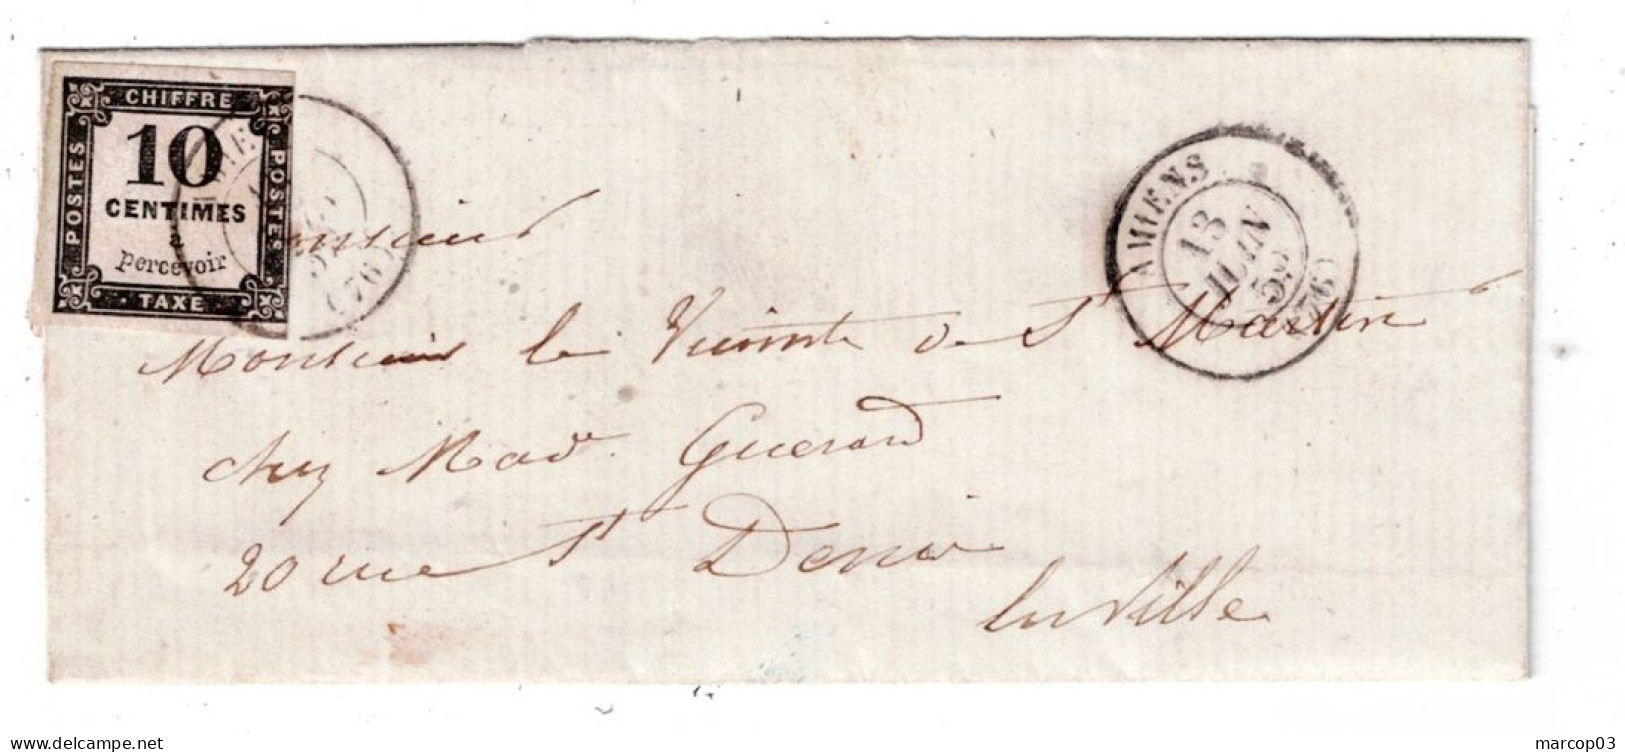 CHIFFRE
10
CENTIMES
à
percevoir
TAXE
POSTES
POSTES
(76)
AMIENS
13
JUIN
59
(76)
Monsieur
Monsieur le Vicomte de St Martin
chez Made Guerard
20 rue St Denis
En Ville
delcampe.net
marcop03